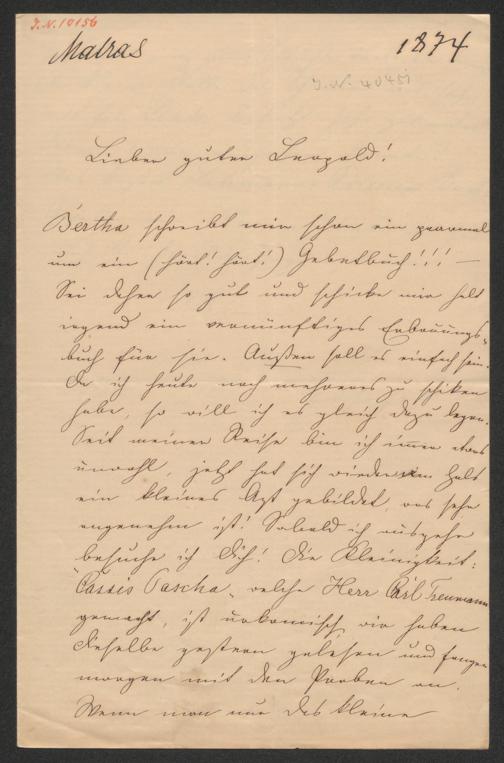 J.N. 10156
Matras
1874
J.N. 40451
Lieber guter Leopold!
Bertha schreibt mir schon ein paarmal
um ein (hört! hört!) Gebetbuch!!! —
Sei daher so gut und schicke mir halt
irgend ein vernünftiges Erbauungs-
buch für sie. Außen soll es einfach sein.
Da ich heute noch mehreres zu schiken
habe, so will ich es gleich dazu legen.
Seit meiner Reise bin ich immer etwas
unwohl, jetzt hat sich wieder im Hals
ein kleines gebildet, was sehr
angenehm ist! Sobald ich ausgehe
besuche ich Dich! Die Kleinigkeit:
"Cassis Pascha", welche Herr Carl Treumann
gemacht, ist urkomisch, wir haben
dieselbe gestern gelesen und fangen
morgen mit den Proben an.
Wenn man nur das kleine